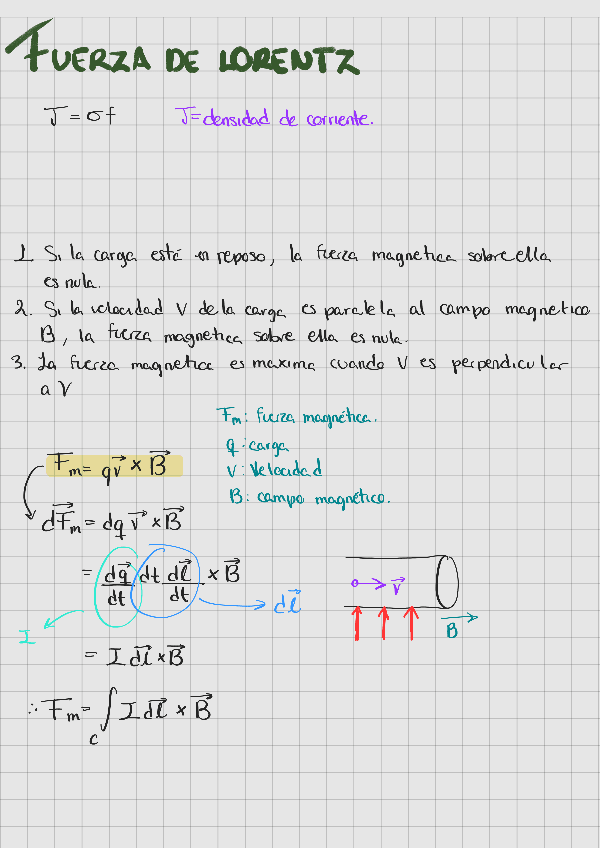 FUERZA DE LORENTZ
J = σf
J = densidad de corriente.
1. Si la carga está en reposo, la fuerza magnetica sobre ella
es nula.
2. Si la velocidad V de la carga es paralela al campo magnetico
B, la fuerza magnetica sobre ella es nula.
3. La fuerza magnetica es maxima cuando V es perpendicular
a V
Fm: fuerza magnética.
q: carga
V: Velocidad
B: campo magnético.
F⃗m = qv⃗ × B⃗
dF⃗m = dq v⃗ × B⃗
= dq⃗/dt dt dl⃗/dt × B⃗
dl⃗
I
v⃗
B
= I dl⃗ × B⃗
∴ F⃗m = ∫c I dl⃗ × B⃗